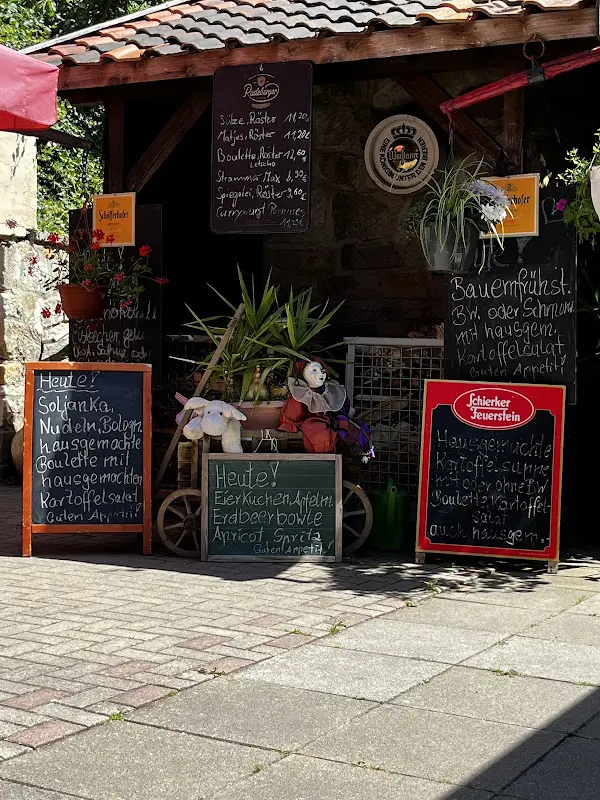 Radeberger
Sülze, Röster 11,20
Matjes, Röster 11,20
Boulette, Röster 12,60
Letscho
Strammer Max 6,90
Spiegelei, Röster 9,60
Currywurst Pommes
Schöfferhofer
Schöfferhofer
Bauernfrühst.
Bw. oder Schnurw.
mit hausgem.
Kartoffelsalat
Guten Appetit!
Heute!
Soljanka,
Nudeln, Bologn.
hausgemachte
Boulette mit
hausgemachten
Kartoffelsalat
Guten Appetit!
Heute!
Eierkuchen, Apfelm.
Erdbeerbowle
Apricot, Spritz
Guten Appetit!
Schierker
Feuerstein
Hausgemachte
Kartoffelsuppe
mit oder ohne BW.
Boulette, Kartoffel-
Salat
auch hausgem.